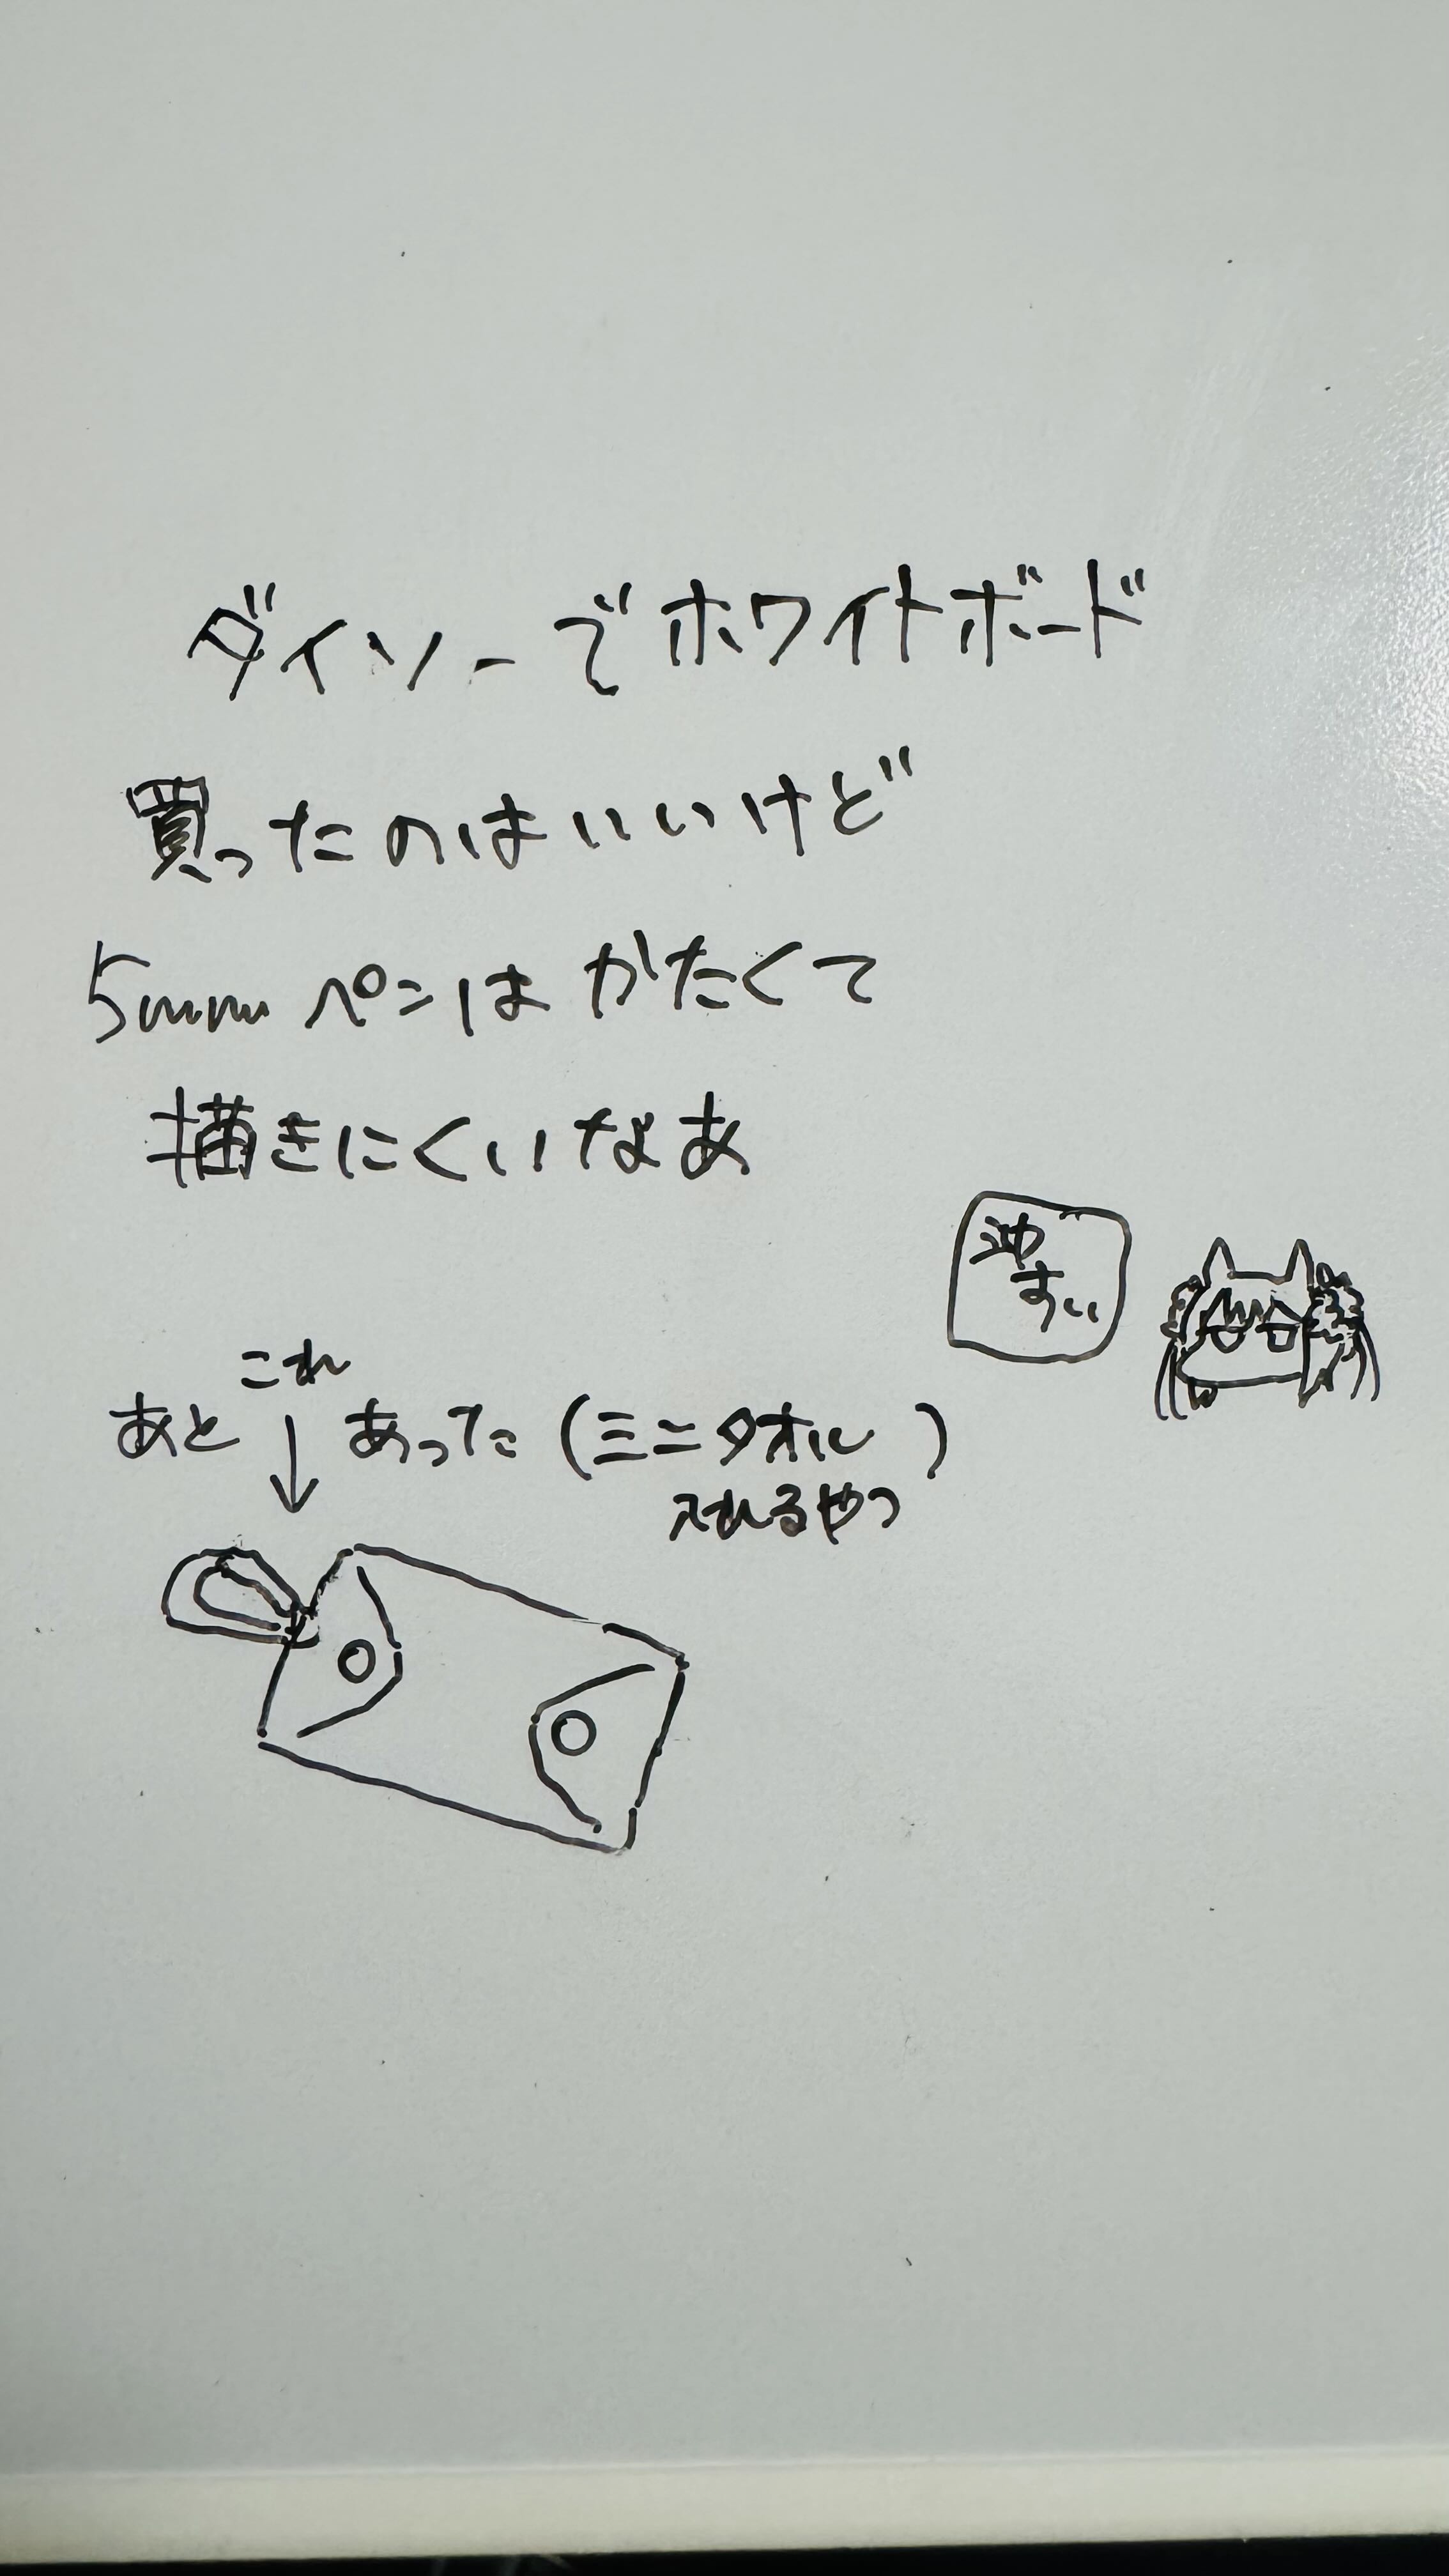 ダイソーでホワイトボード
買ったのはいいけど
5mmペンはかたくて
描きにくいなあ
すい
これ
あと↓あった(ミニタオル
入れるやつ)